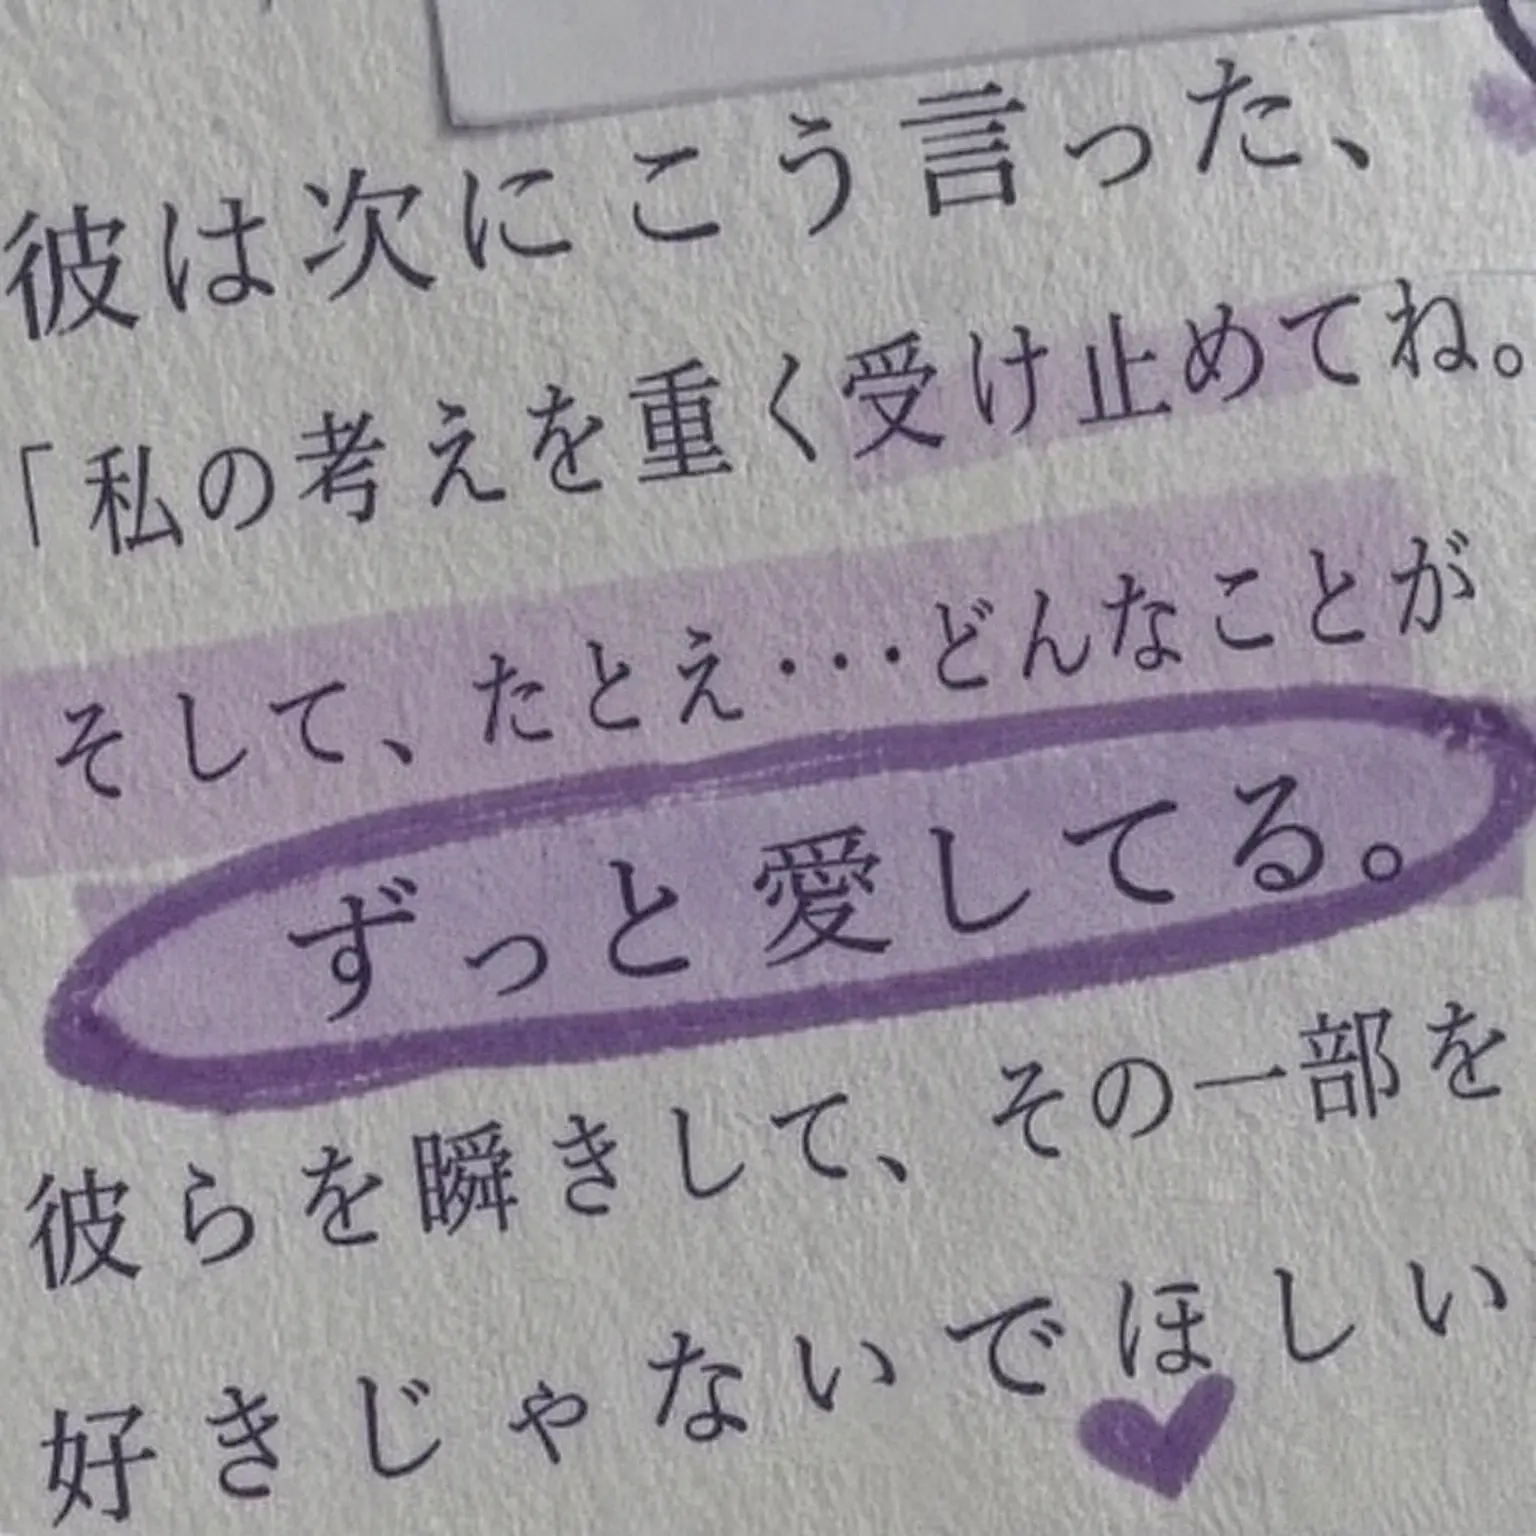 彼は次にこう言った、
「私の考えを重く受け止めてね。
そして、たとえ···どんなことが
ずっと愛してる。
彼らを瞬きして、その一部を
好きじゃないでほしい